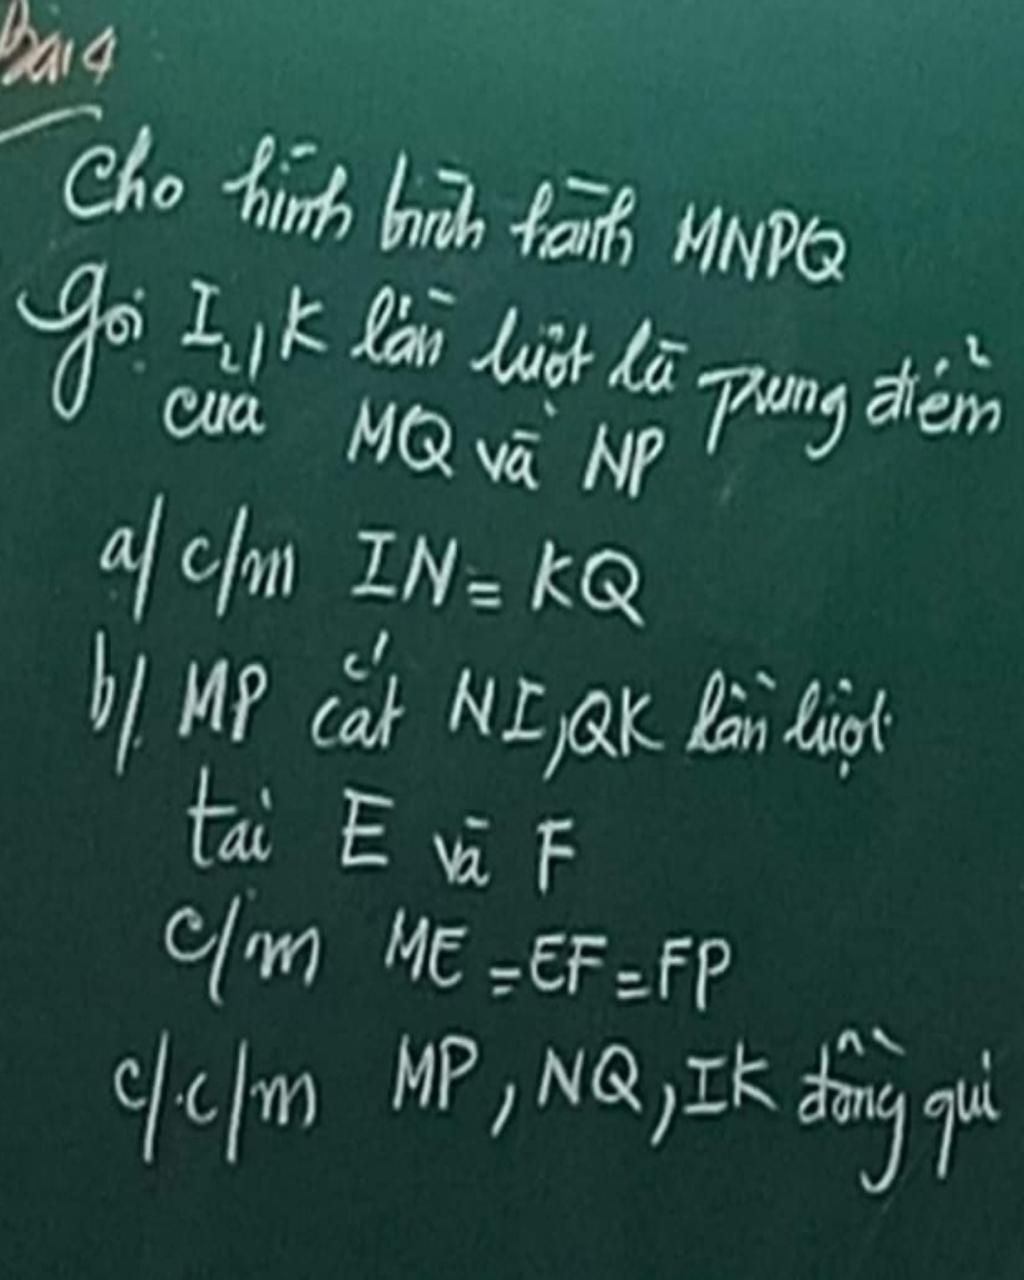 Bài 4
Cho hình bình hành MNPQ
Gọi I, K lần lượt là trung điểm
của MQ và NP
a/ c/m IN = KQ
b/ MP cắt NI, QK lần lượt
tại E và F
c/m ME = EF = FP
c/. c/m MP, NQ, IK đồng qui